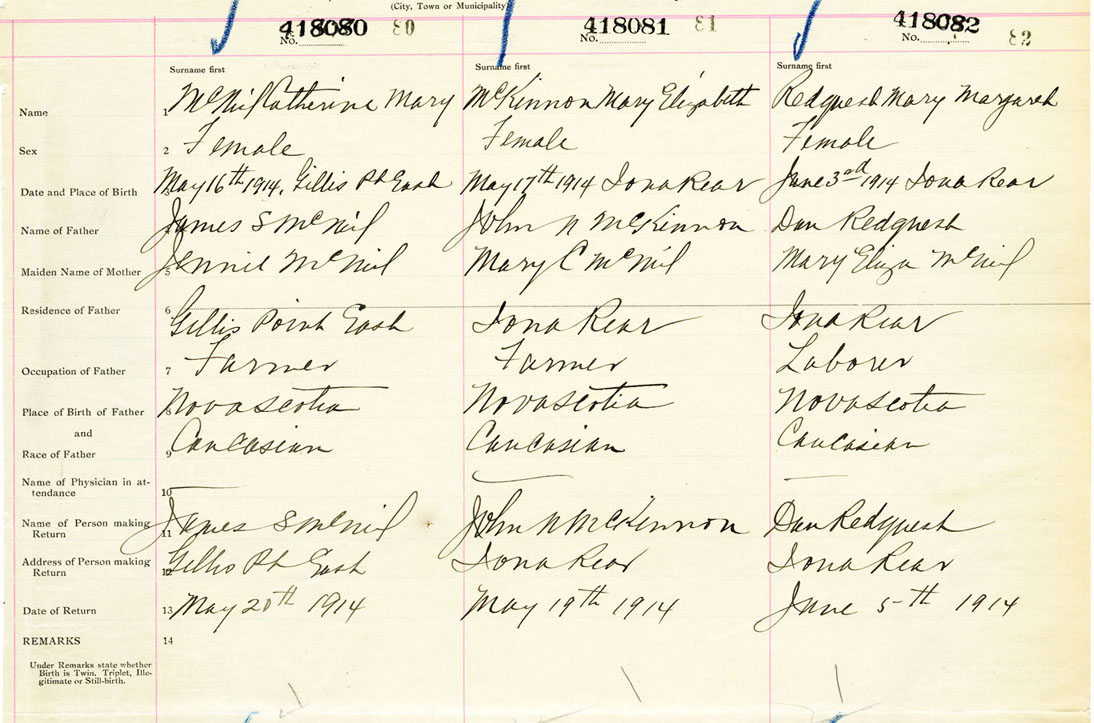 (City, Town or Municipality)
No. 418080 80
No. 418081 81
No. 418082 82
Surname first Surname first Surname first
Name 1 McNeil Catherine Mary McKinnon Mary Elizabeth Redquest Mary Margaret
Sex 2 Female Female Female
Date and Place of Birth 3 May 16th 1914, Gillis Pt East May 17th 1914 Iona Rear June 3rd 1914 Iona Rear
Name of Father 4 James S McNeil John N McKinnon Dan Redquest
Maiden Name of Mother 5 Jennie McNeil Mary C McNeil Mary Eliza McNeil
Residence of Father 6 Gillis Point East Iona Rear Iona Rear
Occupation of Father 7 Farmer Farmer Laborer
Place of Birth of Father 8 Nova Scotia Nova Scotia Nova Scotia
and
Race of Father 9 Caucasian Caucasian Caucasian
Name of Physician in at-
tendance 10
Name of Person making
Return 11 James S McNeil John N McKinnon Dan Redquest
Address of Person making
Return 12 Gillis Pt East Iona Rear Iona Rear
Date of Return 13 May 20th 1914 May 19th 1914 June 5th 1914
REMARKS 14
Under Remarks state whether
Birth is Twin, Triplet, Ille-
gitimate or Still-birth.